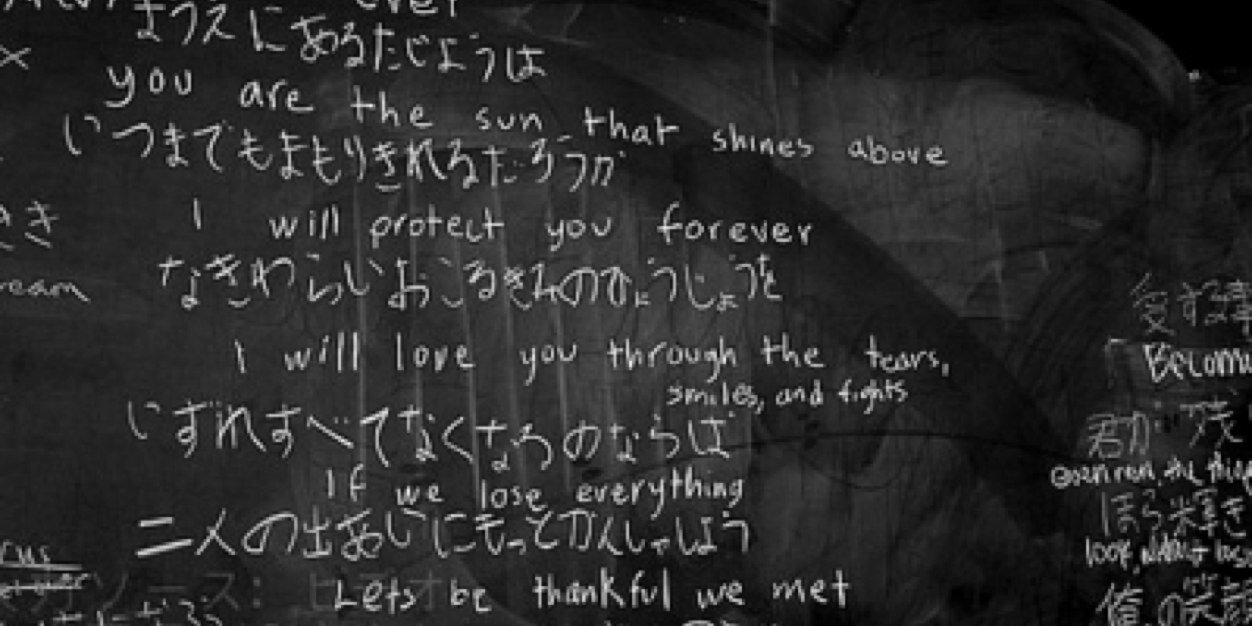 ever
まうえにあるたいようは
you are the sun that shines above
いつまでもまもりきれるだろうか
I will protect you forever
なきわらいおこるきみのひょうじょうを
I will love you through the tears,
smiles, and fights
いずれすべてなくなるのならば
If we lose everything
二人の出あいにもっとかんしゃしよう
Lets be thankful we met
愛する事
Become
君が残
ほら輝き
俺の笑顔